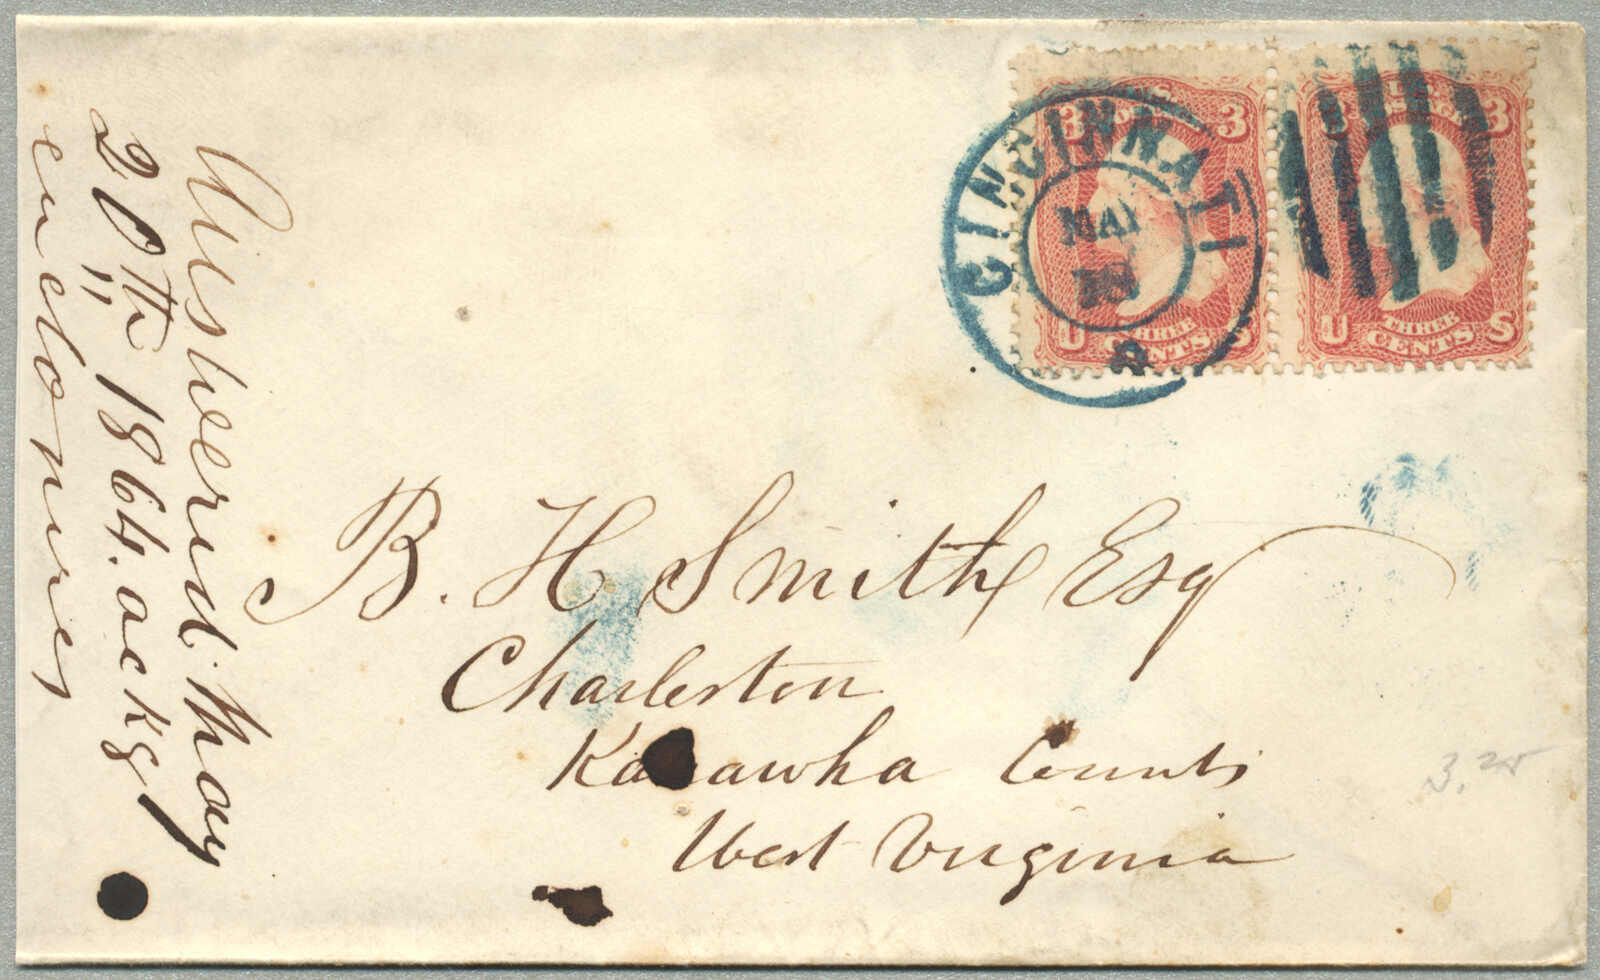 Answered May
20th 1864. ackg
enclosures
CINCINNATI
MAY
18
O.
U.S.
POSTAGE
3 3
THREE
CENTS
U S
U.S.
POSTAGE
3 3
THREE
CENTS
U S
B. H. Smith Esq
Charleston
Kanawha County
West Virginia